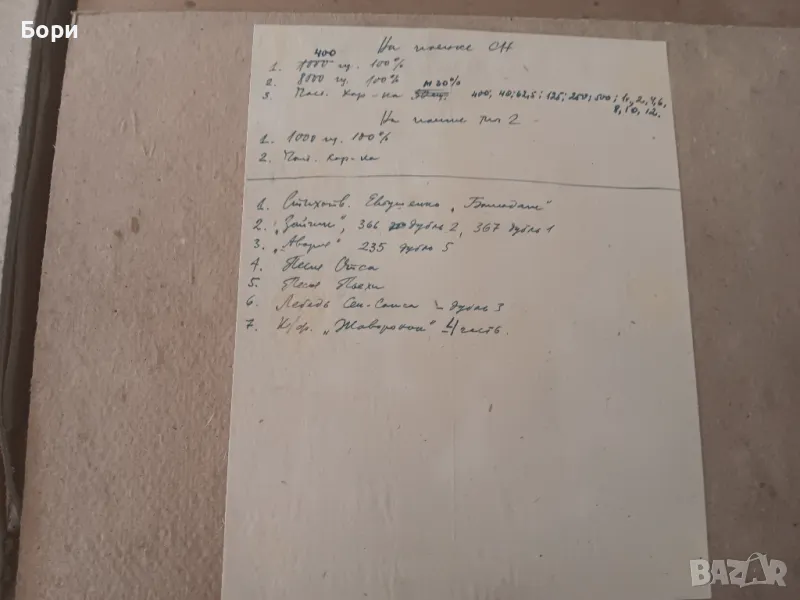 Бори
На пленке СН
400
1. 1000 гц. 100%
2. 8000 гц. 100% м 20%
3. Част. хар-ка 400, 40; 62,5; 125; 250; 500; 1, 2, 4, 6,
8, 10, 12,
На пленке тип 2
1. 1000 гц. 100%
2. Част. хар-ка
1. Стихотв. Евтушенко
2. „Зайчик", 366 дубль 2, 367 дубль 1
3. „Авария" 235 дубль 5
4. Песня Отса
5. Песня Пьехи
6. Лебедь Сен-Санса дубль 3
7. К/ф. „Жаворонок" 4 часть.
BAZAR